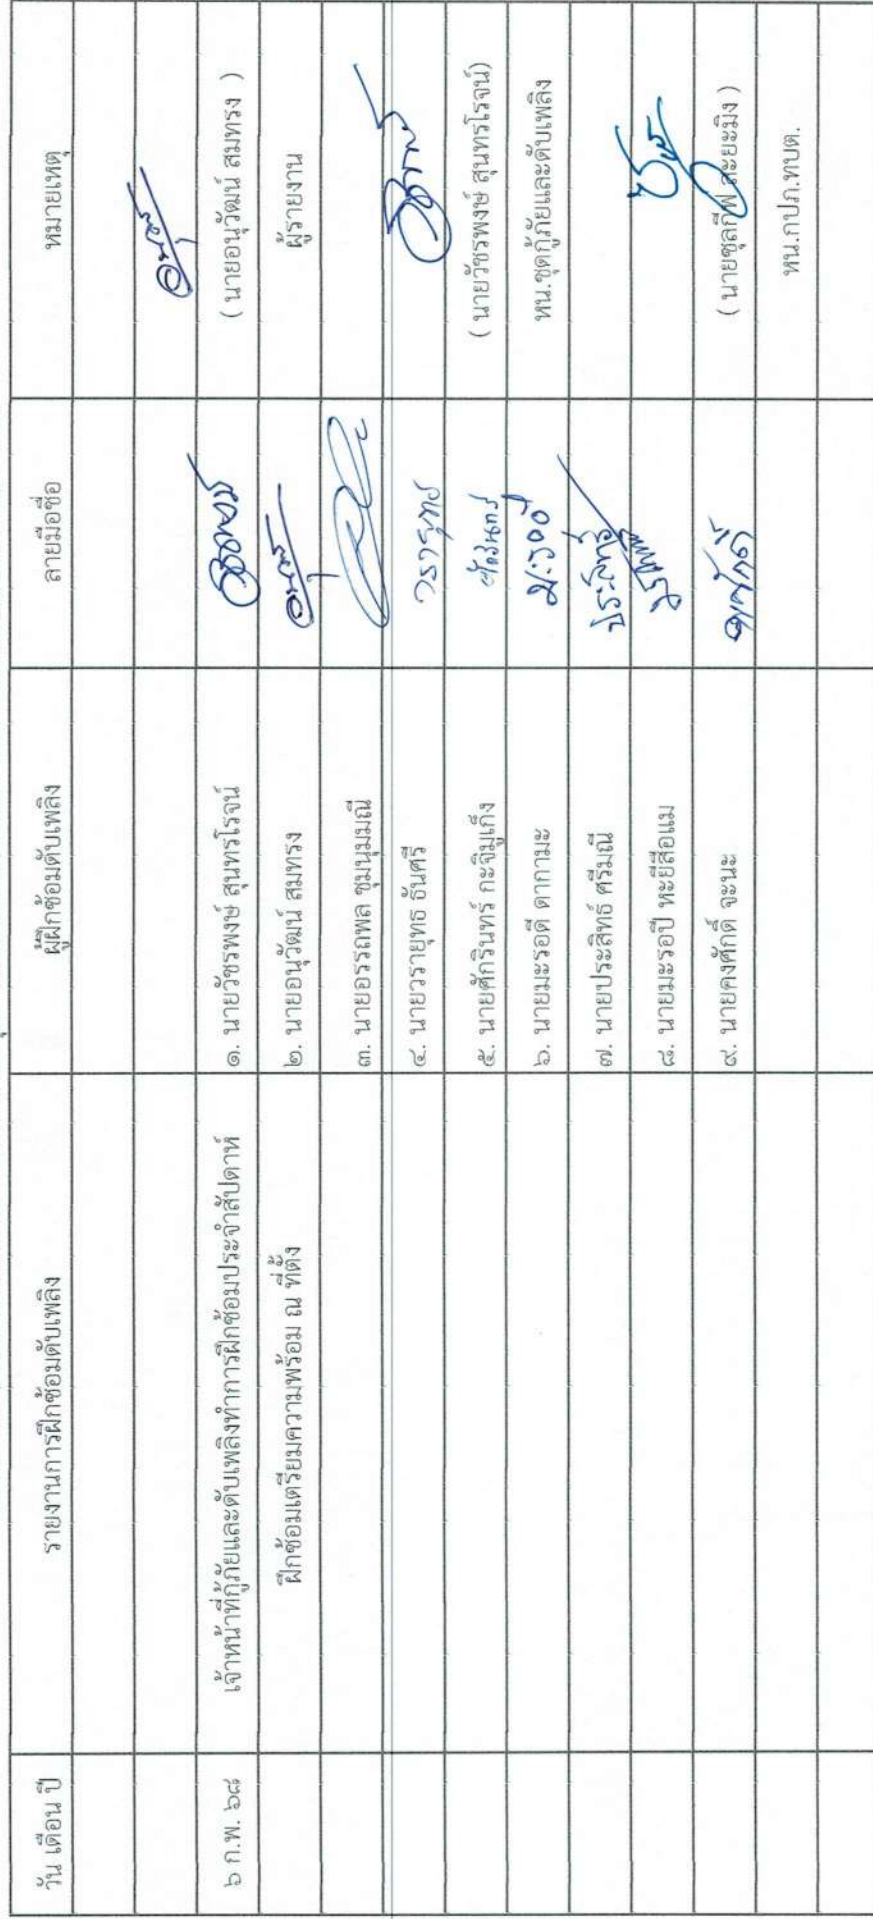 วัน เดือน ปี รายงานการฝึกซ้อมดับเพลิง ผู้ฝึกซ้อมดับเพลิง ลายมือชื่อ หมายเหตุ
๖ ก.พ. ๖๘ เจ้าหน้าที่กู้ภัยและดับเพลิงทำการฝึกซ้อมประจำสัปดาห์ ๑. นายวัชรพงษ์ สุนทรโรจน์ ( นายอนุวัฒน์ สมทรง )
ฝึกซ้อมเตรียมความพร้อม ณ ที่ตั้ง ๒. นายอนุวัฒน์ สมทรง ผู้รายงาน
๓. นายอรรถพล ชุมนุมมณี
๔. นายวรายุทธ ธันศรี วรายุทธ
๕. นายศักรินทร์ กะจิมูเก็ง ศักรินทร์ ( นายวัชรพงษ์ สุนทรโรจน์)
๖. นายมะรอดี ดากามะ หน.ชุดกู้ภัยและดับเพลิง
๗. นายประสิทธ์ ศรีมณี ประสิทธ์
๘. นายมะรอปี หะยีสือแม
๙. นายคงศักดิ์ จะนะ คงศักดิ์ ( นายซุลกีฟ สะยะมิง )
หน.กปภ.ทบต.